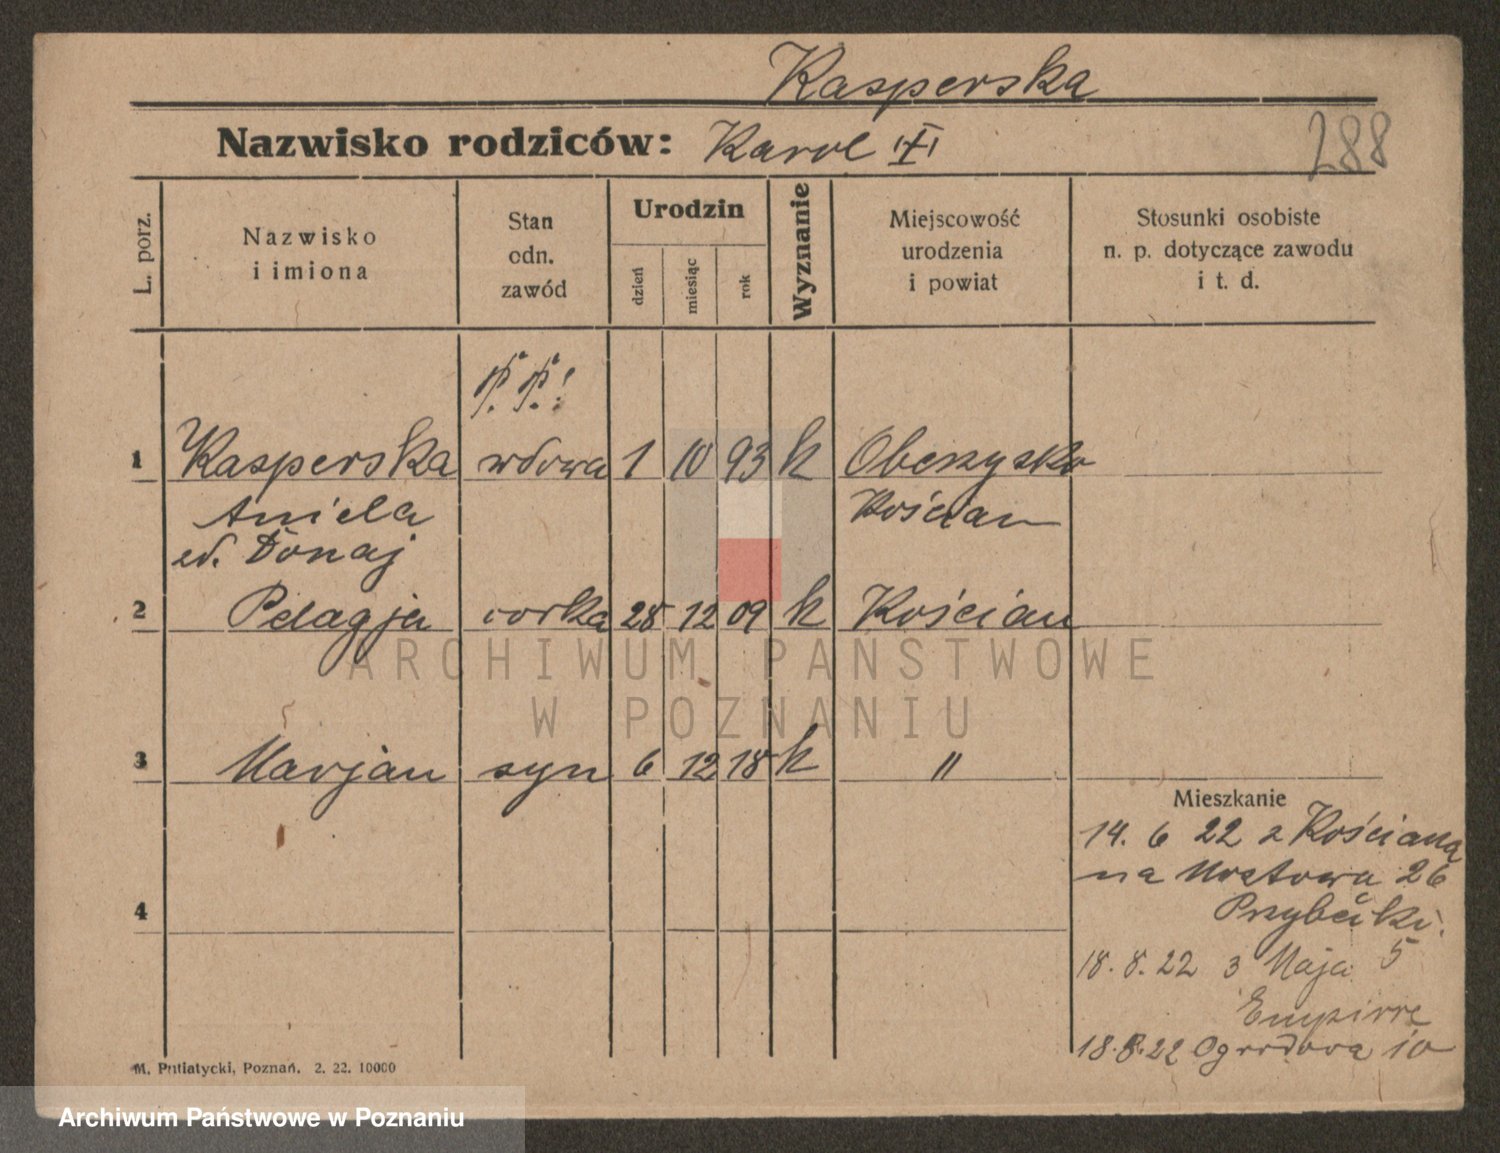 Kasperska
Nazwisko rodziców: Karol
288
L. porz.
Nazwisko i imiona
Stan odn. zawód
Urodzin
dzień
miesiąc
rok
Wyznanie
Miejscowość urodzenia i powiat
Stosunki osobiste n. p. dotyczące zawodu i t. d.
1 Kasperska wdowa 1 10 93 k Obrzysko
Aniela Kościan
Donaj
2 Pelagja corka 28 12 09 k Kościan
ARCHIWUM PAŃSTWOWE
W POZNANIU
3 Marjan syn 6 12 18 k "
Mieszkanie
14. 6 22 z Kościana
na Mostowa 26
18. 8. 22 3 Maja 5
4
18. 8. 22 Ogrodowa 10
M. Putiatycki, Poznań. 2. 22. 10000
Archiwum Państwowe w Poznaniu